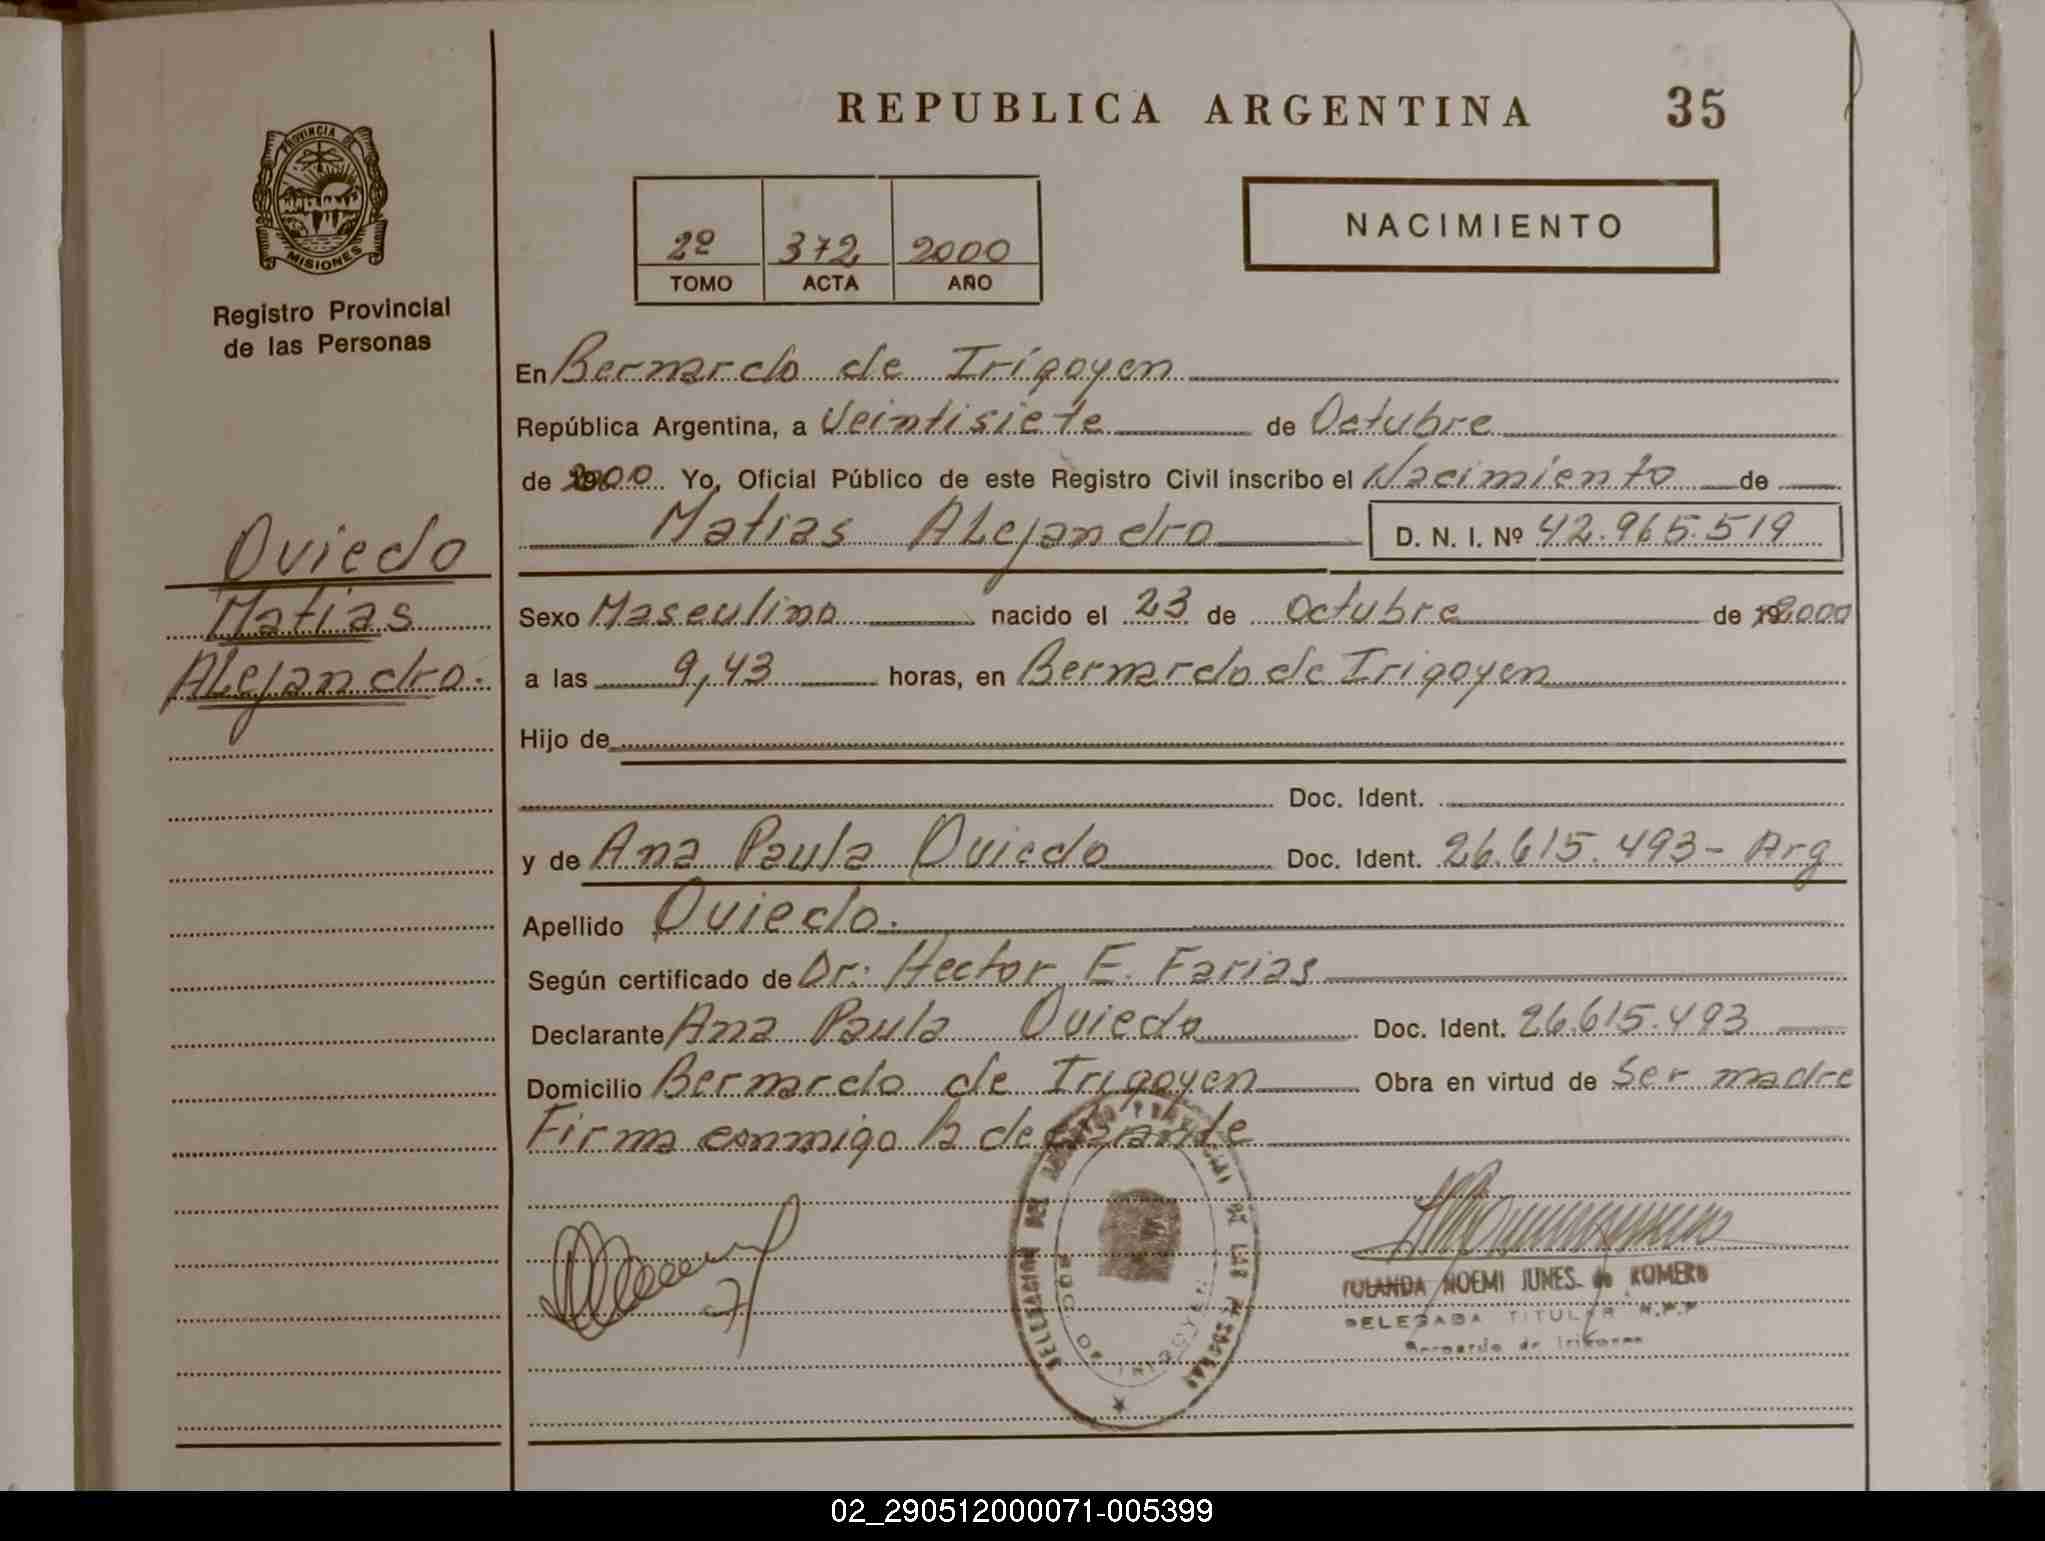 REPUBLICA ARGENTINA 35
PROVINCIA DE
MISIONES
Registro Provincial
de las Personas
NACIMIENTO
2º 372 2000
TOMO ACTA AÑO
En Bernardo de Irigoyen
República Argentina, a Veintisiete de Octubre
de 2000 Yo, Oficial Público de este Registro Civil inscribo el Nacimiento de
Matias Alejandro D. N. I. Nº 42.965.519
Oviedo
Matias
Alejandro.
Sexo Masculino nacido el 23 de Octubre de 2000
a las 9,43 horas, en Bernardo de Irigoyen
Hijo de
Doc. Ident.
y de Ana Paula Oviedo Doc. Ident. 26.615.493- Arg
Apellido Oviedo.
Según certificado de Dr: Hector E. Farias
Declarante Ana Paula Oviedo Doc. Ident. 26.615.493
Domicilio Bernardo de Irigoyen Obra en virtud de Ser madre
Firma conmigo la declarante
DELEGACION DEL REGISTRO PROVINCIAL DE LAS PERSONAS
BDO. DE IRIGOYEN
YOLANDA NOEMI JUNES de ROMERO
DELEGADA TITULAR R.P.P
Bernardo de Irigoyen
02_290512000071-005399